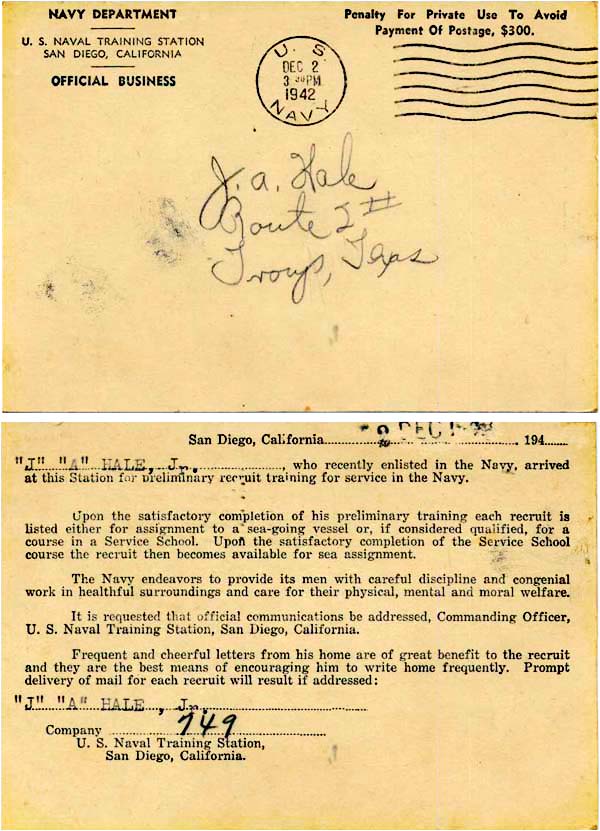 NAVY DEPARTMENT
U. S. NAVAL TRAINING STATION
SAN DIEGO, CALIFORNIA
OFFICIAL BUSINESS
Penalty For Private Use To Avoid
Payment Of Postage, $300.
U. S.
DEC 2
3 30 PM
1942
NAVY
J. A. Hale
Route 2
Troup, Texas
San Diego, California DEC 194
"J" "A" HALE, Jr., who recently enlisted in the Navy, arrived
at this Station for preliminary recruit training for service in the Navy.
Upon the satisfactory completion of his preliminary training each recruit is
listed either for assignment to a sea-going vessel or, if considered qualified, for a
course in a Service School. Upon the satisfactory completion of the Service School
course the recruit then becomes available for sea assignment.
The Navy endeavors to provide its men with careful discipline and congenial
work in healthful surroundings and care for their physical, mental and moral welfare.
It is requested that official communications be addressed, Commanding Officer,
U. S. Naval Training Station, San Diego, California.
Frequent and cheerful letters from his home are of great benefit to the recruit
and they are the best means of encouraging him to write home frequently. Prompt
delivery of mail for each recruit will result if addressed:
"J" "A" HALE, Jr.
Company 749
U. S. Naval Training Station,
San Diego, California.